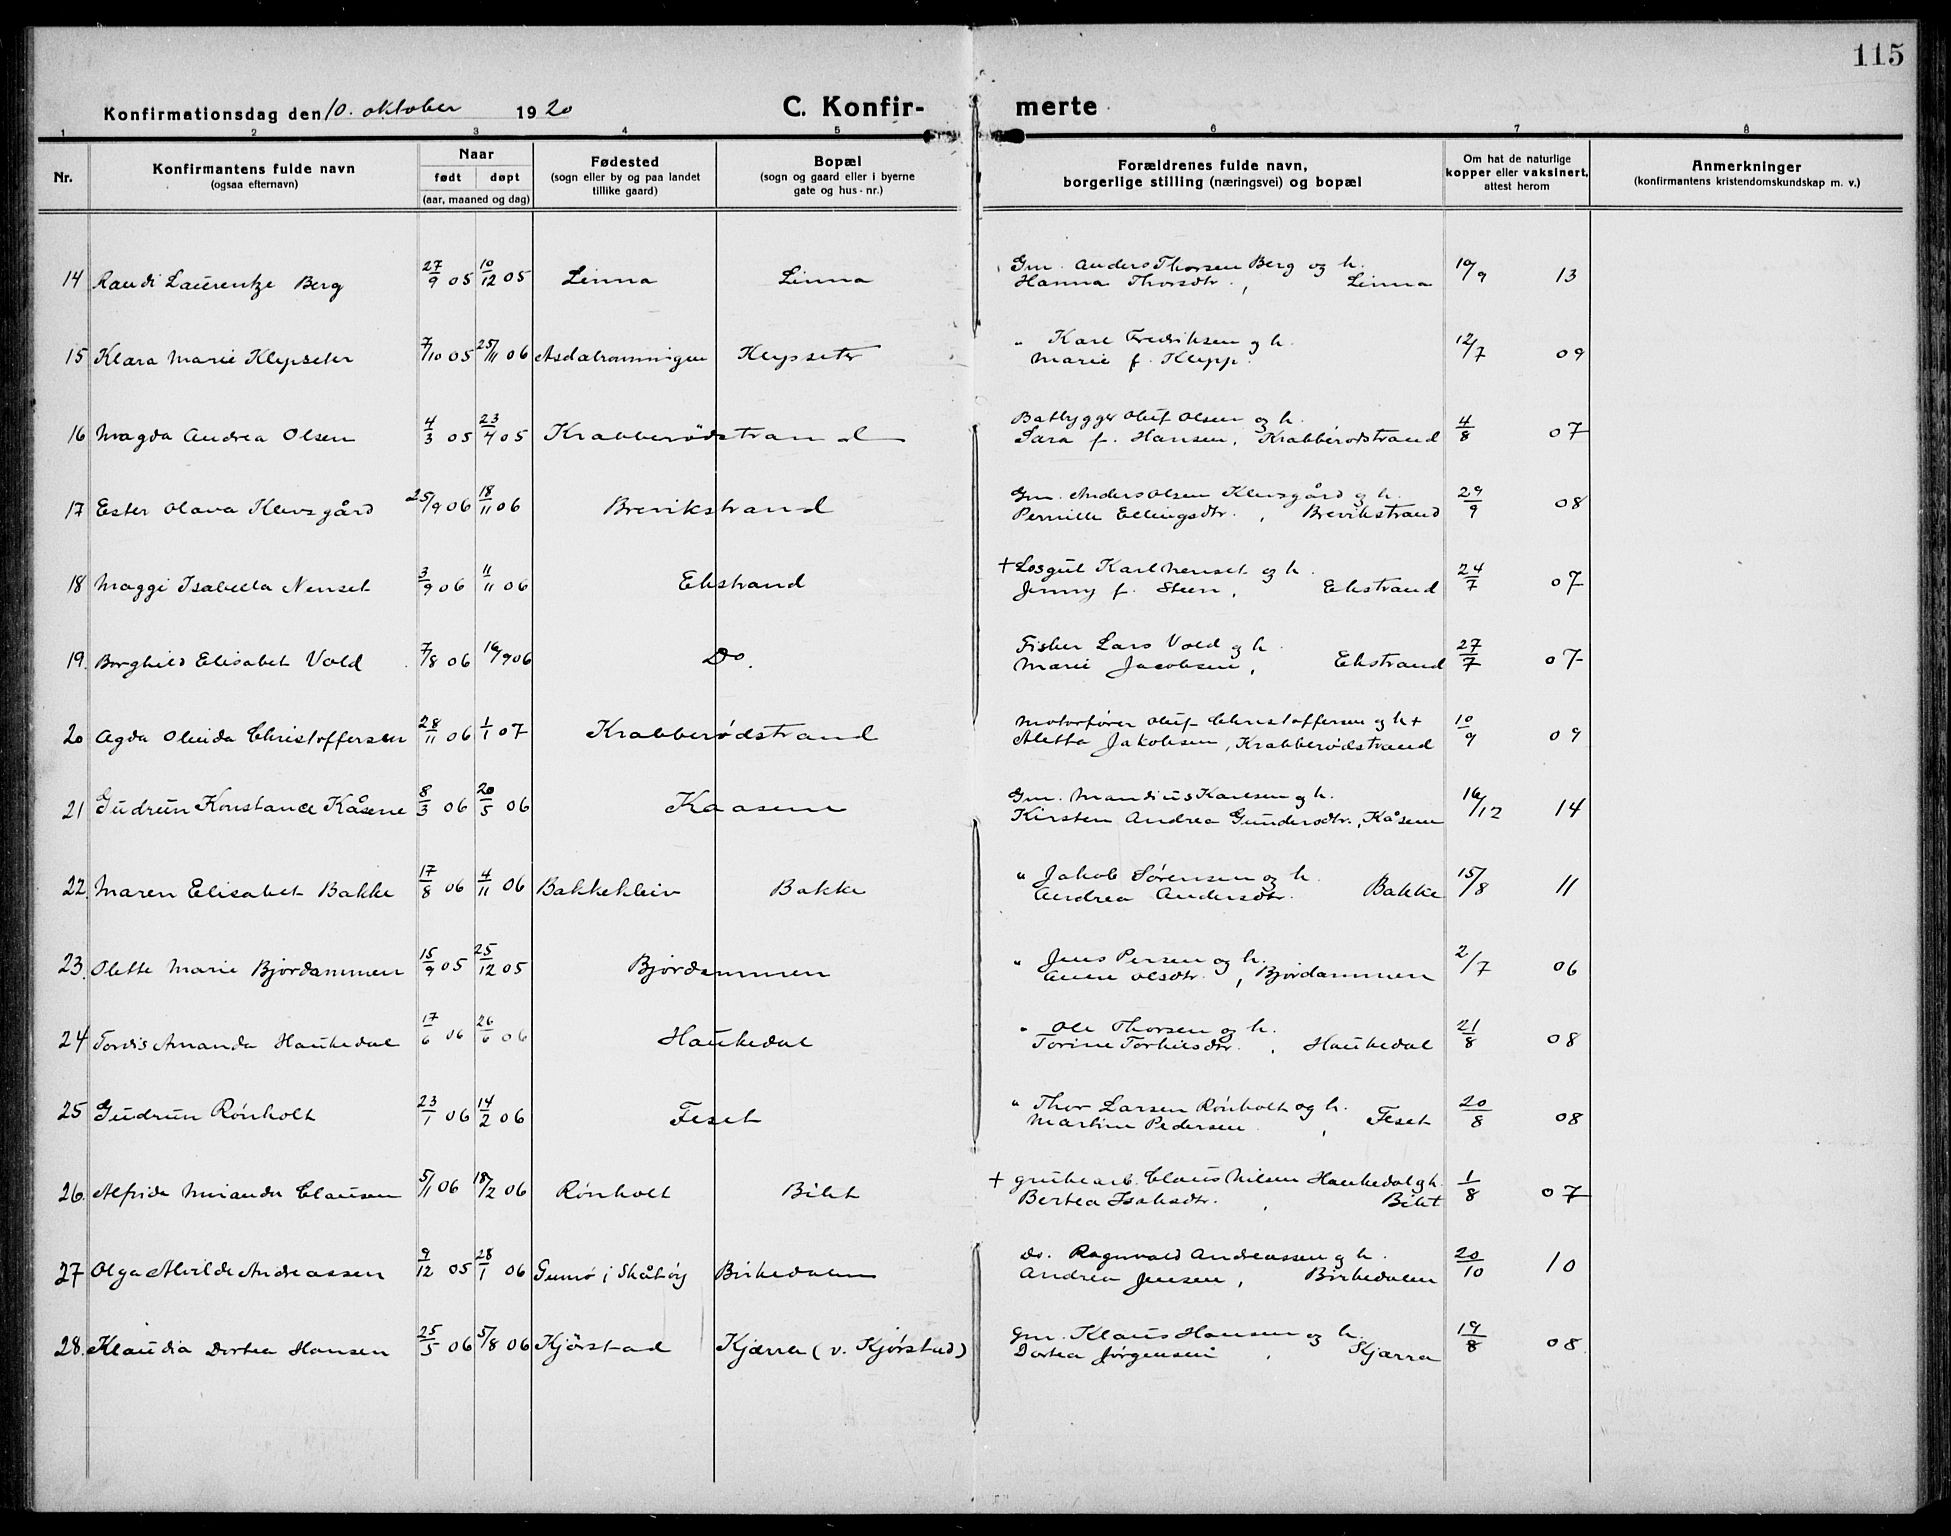 115
Konfirmationsdag den 10. oktober 1920 C. Konfirmerte
1 2 3 4 5 6 7 8
Nr.
Konfirmantens fulde navn
(ogsaa efternavn)
Naar
født døpt
(aar, maaned og dag)
Fødested
(sogn eller by og paa landet
tillike gaard)
Bopæl
(sogn og gaard eller i byerne
gate og hus-nr.)
Forældrenes fulde navn,
borgerlige stilling (næringsvei) og bopæl
Om hat de naturlige
kopper eller vaksinert,
attest herom
Anmerkninger
(konfirmantens kristendomskundskap m. v.)
14 Randi Laurentze Berg 27/9 05 10/12 05 Linna Linna Gm. Anders Thorsen Berg og h.
Hanna Thorsdtr., Linna 10/9 13
15 Klara Marie Klepseter 7/10 05 25/11 06 Asdalronningen Klepseter " Karl Fredriksen og h.
Marie f. Klepp. 12/7 09
16 Magda Andrea Olsen 4/3 05 23/4 05 Krabberødstrand Batbygger Oluf Olsen og h.
Sara f. Hansen, Krabberødstrand 4/8 07
17 Ester Olava Klevsgård 25/9 06 18/11 06 Brevikstrand Gm. Anders Olsen Klevsgård og h.
Pernille Ellingsdtr., Brevikstrand 29/9 08
18 Maggi Isabella Nenset 3/9 06 11/11 06 Ekstrand + Losgut Karl Nenset og h.
Jenny f. Steen, Ekstrand 24/7 07
19. Borghild Elisabet Vold 7/8 06 16/9 06 Do. Fisker Lars Vold og h.
Marie Jacobsen, Ekstrand 27/7 07
20 Agda Oluida Christoffersen 28/11 06 1/1 07 Krabberødstrand Motorfører Oluf Christoffersen og h +
Aletta Jakobsen, Krabberødstrand 10/9 09
21 Gudrun Konstance Kåsene 8/3 06 20/5 06 Kaasene Gm. Mandius Karlsen og h.
Kirsten Andrea Gundersdtr., Kåsene 16/12 14
22. Maren Elisabet Bakke 17/8 06 4/11 06 Bakkekleiv Bakke " Jakob Sørensen og h.
Andrea Andersdtr. Bakke 15/8 11
23. Olette Marie Bjørdammen 15/9 05 25/12 05 Bjørdammen " Jens Persen og h.
Anne Olsdtr., Bjørdammen 2/7 06
24 Tordis Amanda Haukedal 17/6 06 26/6 06 Haukedal " Ole Thorsen og h.
Torine Torkilsdtr., Haukedal 21/8 08
25 Gudrun Rønholt 23/1 06 14/2 06 Feset " Thor Larsen Rønholt og h.
Martine Pedersen, Feset 20/8 08
26. Alfrida Miranda Clausen 5/1 06 18/2 06 Rønholt Bilet + grubearb. Claus Nilsen Haukedal og h.
Bertea Isaksdtr., Bilet 1/8 07
27 Olga Alvilde Andreassen 9/12 05 28/1 06 Gumø i Skåtøy Birkedalen Do. Ragnvald Andreassen og h.
Andrea Jensen, Birkedalen 20/10 10
28. Klaudia Dortea Hansen 25/5 06 5/8 06 Kjørstad Kjærra (v. Kjørstad) Gm. Klaus Hansen og h.
Dortea Jørgensen, Skjærra 19/8 08